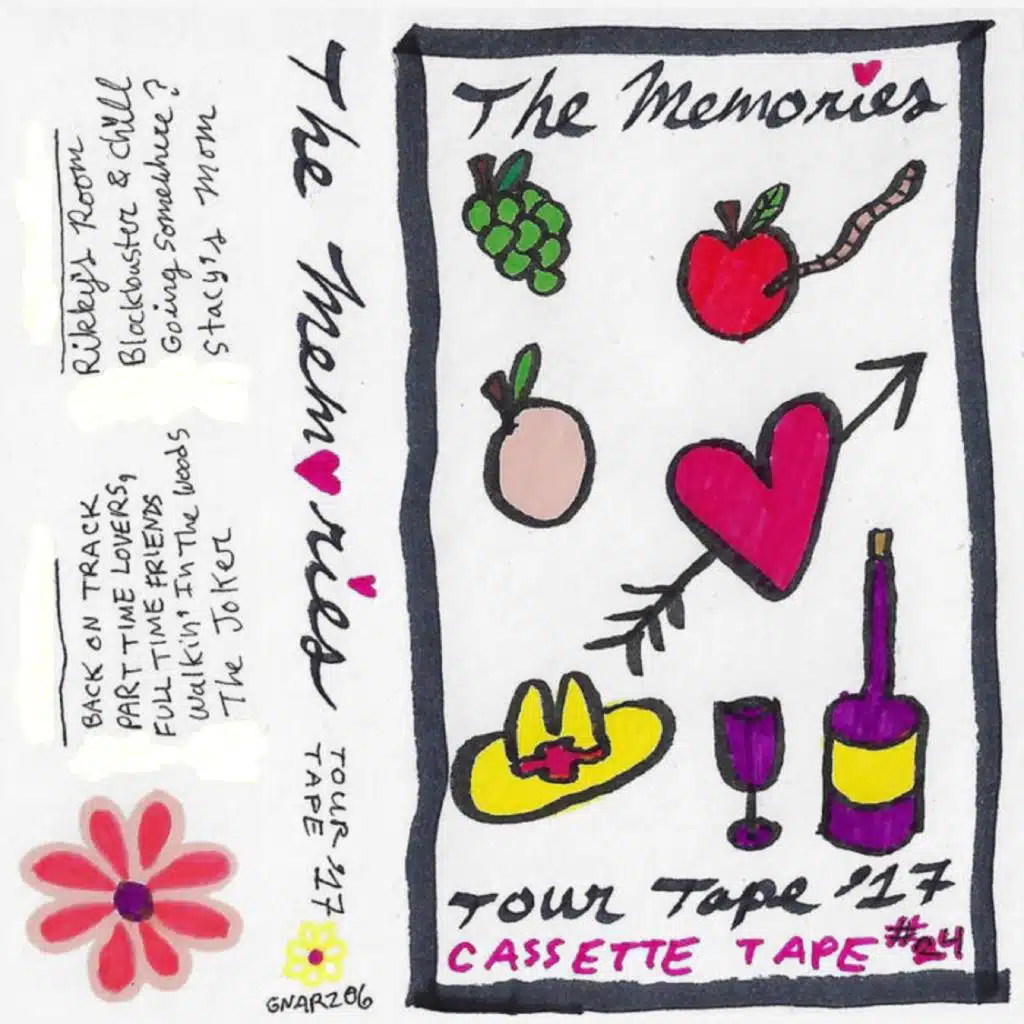 Rikky's Room
Blockbuster & Chill
Going Somewhere?
Stacy's Mom
BACK ON TRACK
PART TIME LOVERS,
FULL TIME FRIENDS
Walkin' In The Woods
The Joker
The Memories
TOUR '17
TAPE
GNAR206
The Memories
TOUR Tape '17
CASSETTE TAPE #24